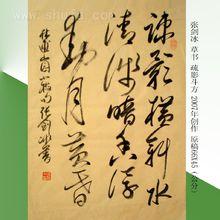 张剑冰 草书 疏影斗方 2007年创作 原稿68X45（公分）
疎影横斜水
清浅暗香浮
動月黄昏
张剑冰书